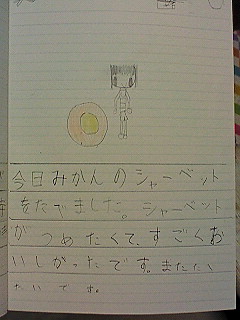 今日みかんのシャーベット
をたべました。シャーベット
がつめたくて、すごくお
いしかったです。またたべ
たいです。